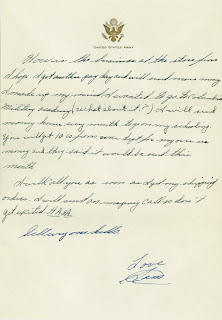 UNITED STATES ARMY
How is the business at the store fine
I hope. I got another pay day and will send more money
I made up my mind I wanted to go to
Military academy (what about it?) I will send
money home every month to go on my schooling
You will get 10 a from over
money and they said it would be sent this
month
I will call you as soon as I get my shipping
orders. I will send an call so don't
get excited HA HA
Love